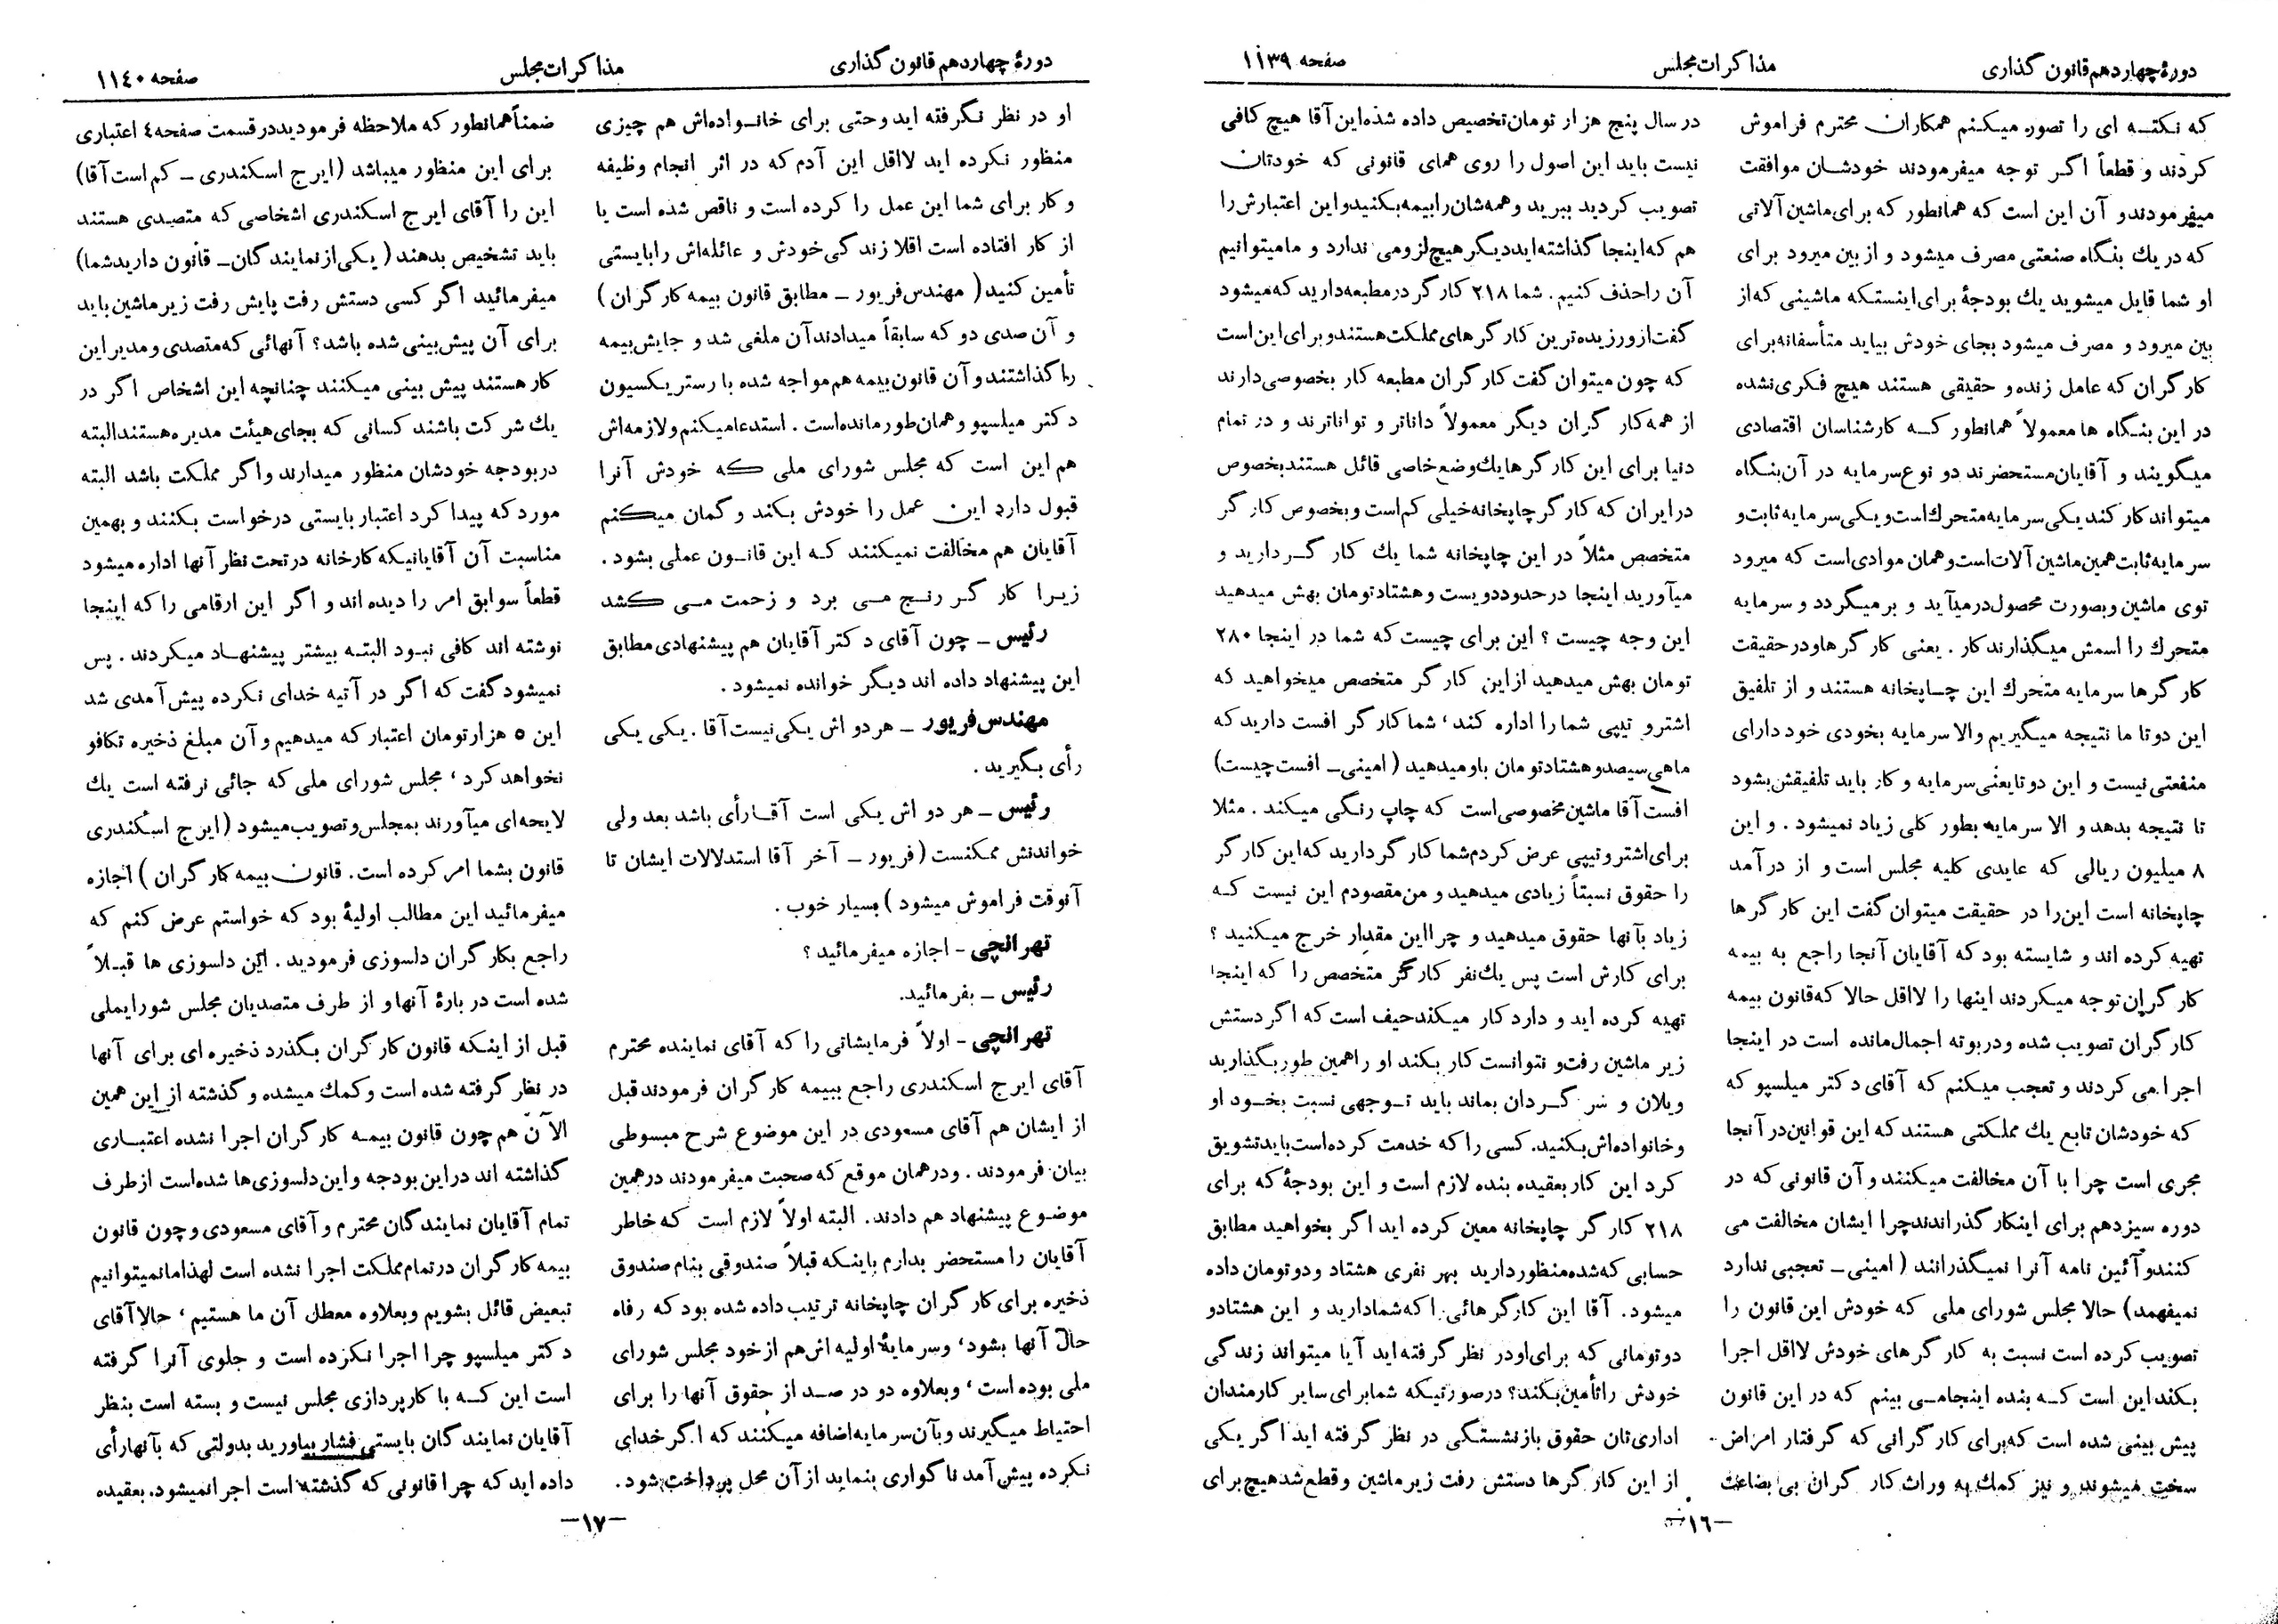 دورهٔ چهاردهم قانون گذاری
مذاکرات مجلس
صفحه ۱۱۳۹
که نکتـه ای را تصور میکنم همکاران محترم فراموش
کردند و قطعاً اگر توجه میفرمودند خودشان موافقت
میفرمودند و آن این است که همانطور که برای ماشین آلاتی
که در یك بنگاه صنعتی مصرف میشود و از بین میرود برای
او شما قایل میشوید یك بودجهٔ برای اینستکه ماشینی که از
بین میرود و مصرف میشود بجای خودش بیاید متأسفانه برای
کارگران که عامل زنده و حقیقی هستند هیچ فکری نشده
در این بنگاه ها معمولاً همانطور کـه کارشناسان اقتصادی
میگویند و آقایان مستحضرند دو نوع سرمایه در آن بنگاه
میتواند کار کند یکی سرمایه متحرك است و یکی سرمایه ثابت و
سرمایه ثابت همین ماشین آلات است و همان موادی است که میرود
توی ماشین و بصورت محصول درمیآید و برمیگردد و سرمایه
متحرك را اسمش میگذارند کار . یعنی کارگرها و در حقیقت
کارگرها سرمایه متحرك این چـاپخانه هستند و از تلفیق
این دوتا ما نتیجه میگیریم والا سرمایه بخودی خود دارای
منفعتی نیست و این دوتا یعنی سرمایه و کار باید تلفیقش بشود
تا نتیجه بدهد و الا سرمایه بطور کلی زیاد نمیشود . و این
۸ میلیون ریالی که عایدی کلیه مجلس است و از درآمد
چاپخانه است این را در حقیقت میتوان گفت این کارگرها
تهیه کرده اند و شایسته بود که آقایان آنجا راجع به بیمه
کارگران توجه میکردند اینها را لااقل حالا که قانون بیمه
کارگران تصویب شده و در بوته اجمال مانده است در اینجا
اجرا می کردند و تعجب میکنم که آقای دکتر میلسپو که
که خودشان تابع یك مملکتی هستند که این قوانین در آنجا
مجری است چرا با آن مخالفت میکنند و آن قانونی که در
دوره سیزدهم برای اینکار گذراندند چرا ایشان مخالفت می
کنند و آئین نامه آنرا نمیگذرانند ( امینی ـ تعجبی ندارد
نمیفهمد) حالا مجلس شورای ملی که خودش این قانون را
تصویب کرده است نسبت به کارگرهای خودش لااقل اجرا
بکند این است کـه بنده اینجامـی بینم که در این قانون
پیش بینی شده است که برای کارگرانی که گرفتار امراض
سخت میشوند و نیز کمك به وراث کارگران بی بضاعت
در سال پنج هزار تومان تخصیص داده شده این آقا هیچ کافی
نیست باید این اصول را روی همای قانونی که خودتان
تصویب کردید ببرید و همه‌شان را بیمه بکنید و این اعتبارش را
هم که اینجا گذاشته اید دیگر هیچ لزومی ندارد و ما میتوانیم
آن را حذف کنیم . شما ۲۱۸ کارگر در مطبعه دارید که میشود
گفت از ورزیده ترین کارگرهای مملکت هستند و برای این است
که چون میتوان گفت کارگران مطبعه کار بخصوصی دارند
از همه کار گران دیگر معمولاً داناتر و تواناترند و در تمام
دنیا برای این کارگرها یك وضع خاصی قائل هستند بخصوص
در ایران که کارگر چاپخانه خیلی کم است و بخصوص کارگر
متخصص مثلاً در این چاپخانه شما یك کار گـر دارید و
میآورید اینجا در حدود دویست و هشتاد تومان بهش میدهید
این وجه چیست ؟ این برای چیست که شما در اینجا ۲۸۰
تومان بهش میدهید از این کارگر متخصص میخواهید که
اشترو تیپی شما را اداره کند ، شما کارگر افست دارید که
ماهی سیصد و هشتاد تومان باو میدهید ( امینی ـ افست چیست)
افست آقا ماشین مخصوصی است که چاپ رنگی میکند . مثلا
برای اشترو تیپی عرض کردم شما کارگر دارید که این کارگر
را حقوق نسبتاً زیادی میدهید و من مقصودم این نیست کـه
زیاد بآنها حقوق میدهید و چرا این مقدار خرج میکنید ؟
برای کارش است پس یك نفر کارگر متخصص را که اینجا
تهیه کرده اید و دارد کار میکند حیف است که اگر دستش
زیر ماشین رفت و نتوانست کار بکند او را همین طور بگذارید
ویلان و سر گـردان بماند باید تـوجهی نسبت بخـود او
و خانواده‌اش بکنید. کسی را که خدمت کرده است باید تشویق
کرد این کار بعقیده بنده لازم است و این بودجهٔ که برای
۲۱۸ کارگر چاپخانه معین کرده اید اگر بخواهید مطابق
حسابی که شده منظور دارید بهر نفری هشتاد و دو تومان داده
میشود. آقا این کارگرهائی را که شما دارید و این هشتاد و
دو تومانی که برای او در نظر گرفته اید آیا میتواند زندگی
خودش را تأمین بکند؟ در صورتیکه شما برای سایر کارمندان
اداری‌تان حقوق بازنشستگی در نظر گرفته اید اگر یکی
از این کارگرها دستش رفت زیر ماشین و قطع شد هیچ برای
–۱۶–
دورهٔ چهاردهم قانون گذاری
مذاکرات مجلس
صفحه ۱۱۴۰
او در نظر نگرفته اید و حتی برای خانـواده‌اش هم چیزی
منظور نکرده اید لااقل این آدم که در اثر انجام وظیفه
و کار برای شما این عمل را کرده است و ناقص شده است یا
از کار افتاده است اقلا زندگی خودش و عائله‌اش را بایستی
تأمین کنید ( مهندس فریور ـ مطابق قانون بیمه کارگران )
و آن صدی دو که سابقاً میدادند آن ملغی شد و جایش بیمه
را گذاشتند و آن قانون بیمه هم مواجه شده با رستریکسیون
دکتر میلسپو و همان طور مانده است . استدعا میکنم و لازمه‌اش
هم این است که مجلس شورای ملی که خودش آنرا
قبول دارد این عمل را خودش بکند و گمان میکنم
آقایان هم مخالفت نمیکنند کـه این قانـون عملی بشود .
زیـرا کار گـر رنـج مـی برد و زحمت مـی کشد
رئیس ـ چون آقای دکتر آقایان هم پیشنهادی مطابق
این پیشنهاد داده اند دیگر خوانده نمیشود .
مهندس فریور ـ هر دو اش یکی نیست آقا . یکی یکی
رأی بگیرید .
رئیس ـ هر دو اش یکی است آقـا رأی باشد بعد ولی
خواندنش ممکنست ( فریور ـ آخر آقا استدلالات ایشان تا
آنوقت فراموش میشود ) بسیار خوب .
تهرانچی - اجازه میفرمائید ؟
رئیس ـ بفرمائید.
تهرانچی - اولاً فرمایشاتی را که آقای نماینده محترم
آقای ایرج اسکندری راجع ببیمه کارگران فرمودند قبل
از ایشان هم آقای مسعودی در این موضوع شرح مبسوطی
بیان فرمودند . و در همان موقع که صحبت میفرمودند در همین
موضوع پیشنهاد هم دادند. البته اولاً لازم است که خاطر
آقایان را مستحضر بدارم باینکه قبلاً صندوقی بنام صندوق
ذخیره برای کارگران چاپخانه ترتیب داده شده بود که رفاه
حال آنها بشود، و سرمایهٔ اولیه اش هم از خود مجلس شورای
ملی بوده است ، و بعلاوه دو در صـد از حقوق آنها را برای
احتیاط میگیرند و بآن سرمایه اضافه میکنند که اگر خدای
نکرده پیش آمد ناگواری بنماید از آن محل پرداخت شود.
ضمناً همانطور که ملاحظه فرمودید در قسمت صفحه ۴ اعتباری
برای این منظور میباشد (ایرج اسکندری ـ کم است آقا)
این را آقای ایرج اسکندری اشخاصی که متصدی هستند
باید تشخیص بدهند ( یکی از نمایندگان ـ قانون دارید شما)
میفرمائید اگر کسی دستش رفت پایش رفت زیر ماشین باید
برای آن پیش‌بینی شده باشد؟ آنهائی که متصدی و مدیر این
کار هستند پیش بینی میکنند چنانچه این اشخاص اگر در
یك شرکت باشند کسانی که بجای هیئت مدیره هستند البته
در بودجه خودشان منظور میدارند و اگر مملکت باشد البته
مورد که پیدا کرد اعتبار بایستی درخواست بکنند و بهمین
مناسبت آن آقایانیکه کارخانه در تحت نظر آنها اداره میشود
قطعاً سوابق امر را دیده اند و اگر این ارقامی را که اینجا
نوشته اند کافی نبـود البتـه بیشتر پیشنهـاد میکردند . پس
نمیشود گفت که اگر در آتیه خدای نکرده پیش آمدی شد
این ۵ هزار تومان اعتبار که میدهیم و آن مبلغ ذخیره تکافو
نخواهد کرد ، مجلس شورای ملی که جائی نرفته است یك
لایحه‌ای میآورند بمجلس و تصویب میشود (ایرج اسکندری
قانون بشما امر کرده است. قانون بیمه کارگران ) اجازه
میفرمائید این مطالب اولیهٔ بود که خواستم عرض کنم که
راجع بکارگران دلسوزی فرمودید . این دلسوزی ها قبـلاً
شده است در بارهٔ آنها و از طرف متصدیان مجلس شورایملی
قبل از اینکه قانون کارگران بگذرد ذخیره ای برای آنها
در نظر گرفته شده است و کمك میشده و گذشته از این همین
الآن هم چون قانون بیمـه کارگران اجرا نشده اعتبـاری
گذاشته اند در این بودجه و این دلسوزی‌ها شده است از طرف
تمام آقایان نمایندگان محترم و آقای مسعودی و چون قانون
بیمه کارگران در تمام مملکت اجرا نشده است لهذا ما نمیتوانیم
تبعیض قائل بشویم و بعلاوه معطل آن ما هستیم ، حالا آقای
دکتر میلسپو چرا اجرا نکرده است و جلوی آنرا گرفته
است این کـه با کارپردازی مجلس نیست و بسته است بنظر
آقایان نمایندگان بایستی فشار بیاورید بدولتی که بآنها رأی
داده اید که چرا قانونی که گذشته است اجرا نمیشود. بعقیده
–۱۷–